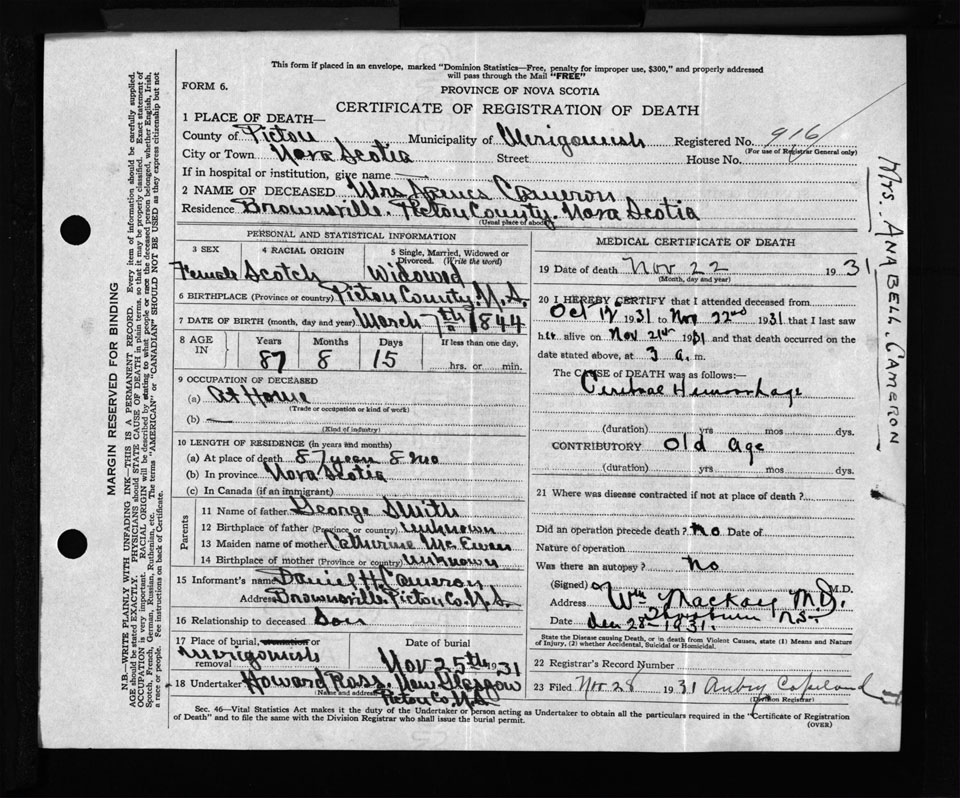 This form if placed in an envelope, marked "Dominion Statistics—Free, penalty for improper use, $300," and properly addressed
will pass through the Mail "FREE"
FORM 6.
PROVINCE OF NOVA SCOTIA
CERTIFICATE OF REGISTRATION OF DEATH
1 PLACE OF DEATH—
County of Pictou Municipality of Merigomish Registered No. 916
(For use of Registrar General only)
City or Town Nova Scotia Street House No.
If in hospital or institution, give name —
2 NAME OF DECEASED Mrs James Cameron
Residence Brownsville. Pictou County. Nova Scotia
(Usual place of abode)
PERSONAL AND STATISTICAL INFORMATION
3 SEX 4 RACIAL ORIGIN 5 Single, Married, Widowed or
Divorced. (Write the word)
Female Scotch Widowed
6 BIRTHPLACE (Province or country) Pictou County, N.S.
7 DATE OF BIRTH (month, day and year) March 7th 1844
8 AGE IN Years Months Days If less than one day,
87 8 15 hrs. or min.
9 OCCUPATION OF DECEASED
(a) At Home
(Trade or occupation or kind of work)
(b) —
(Kind of industry)
10 LENGTH OF RESIDENCE (in years and months)
(a) At place of death 87 years 8 mo
(b) In province Nova Scotia
(c) In Canada (if an immigrant)
Parents
11 Name of father George Smith
12 Birthplace of father (Province or country) unknown
13 Maiden name of mother Catherine Mc Ewan
14 Birthplace of mother (Province or country) unknown
15 Informant's name Daniel H Cameron
Address Brownsville. Pictou Co. N.S.
16 Relationship to deceased Son
17 Place of burial, cremation or removal Date of burial
Merigomish Nov 25th 1931
18 Undertaker Howard Ross. New Glasgow
(Name and address) Pictou Co. N.S.
MEDICAL CERTIFICATE OF DEATH
19 Date of death Nov 22 1931
(Month, day and year)
20 I HEREBY CERTIFY that I attended deceased from
Oct 1931 to Nov 22nd 1931 that I last saw
alive on Nov 21st 1931 and that death occurred on the
date stated above, at 3 a. m.
The CAUSE of DEATH was as follows:—
Cerebral Hemorrhage
(duration) yrs mos dys.
CONTRIBUTORY Old Age
(duration) yrs mos dys.
21 Where was disease contracted if not at place of death?
Did an operation precede death? no Date of
Nature of operation
Was there an autopsy? No
(Signed) M.D.
Address Wm Mackay M.D.
Date 28 1931. N.S.
State the Disease causing Death, or in death from Violent Causes, state (1) Means and Nature
of Injury, (2) whether Accidental, Suicidal or Homicidal.
22 Registrar's Record Number
23 Filed Nov 28 1931 Aubry Copeland
(Division Registrar)
Sec. 46—Vital Statistics Act makes it the duty of the Undertaker or person acting as Undertaker to obtain all the particulars required in the "Certificate of Registration
of Death" and to file the same with the Division Registrar who shall issue the burial permit.
(OVER)
MARGIN RESERVED FOR BINDING
N.B.—WRITE PLAINLY WITH UNFADING INK—THIS IS A PERMANENT RECORD. Every item of information should be carefully supplied.
AGE should be stated EXACTLY. PHYSICIANS should STATE CAUSE OF DEATH in plain terms, so that it may be properly classified. Exact statement of
OCCUPATION is very important. RACIAL ORIGIN will be described by stating to what people or race the deceased person belonged, whether English, Irish,
Scotch, French, German, Russian, Ruthenian, etc. The terms "AMERICAN" or "CANADIAN" SHOULD NOT BE USED as they express citizenship but not
a race or people. See instructions on back of Certificate.
Mrs. ANABELL CAMERON